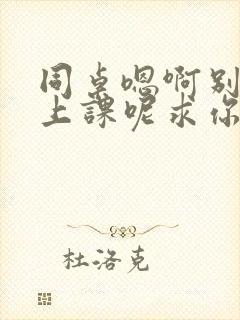 同桌嗯啊别
上課呢求你
杜洛克